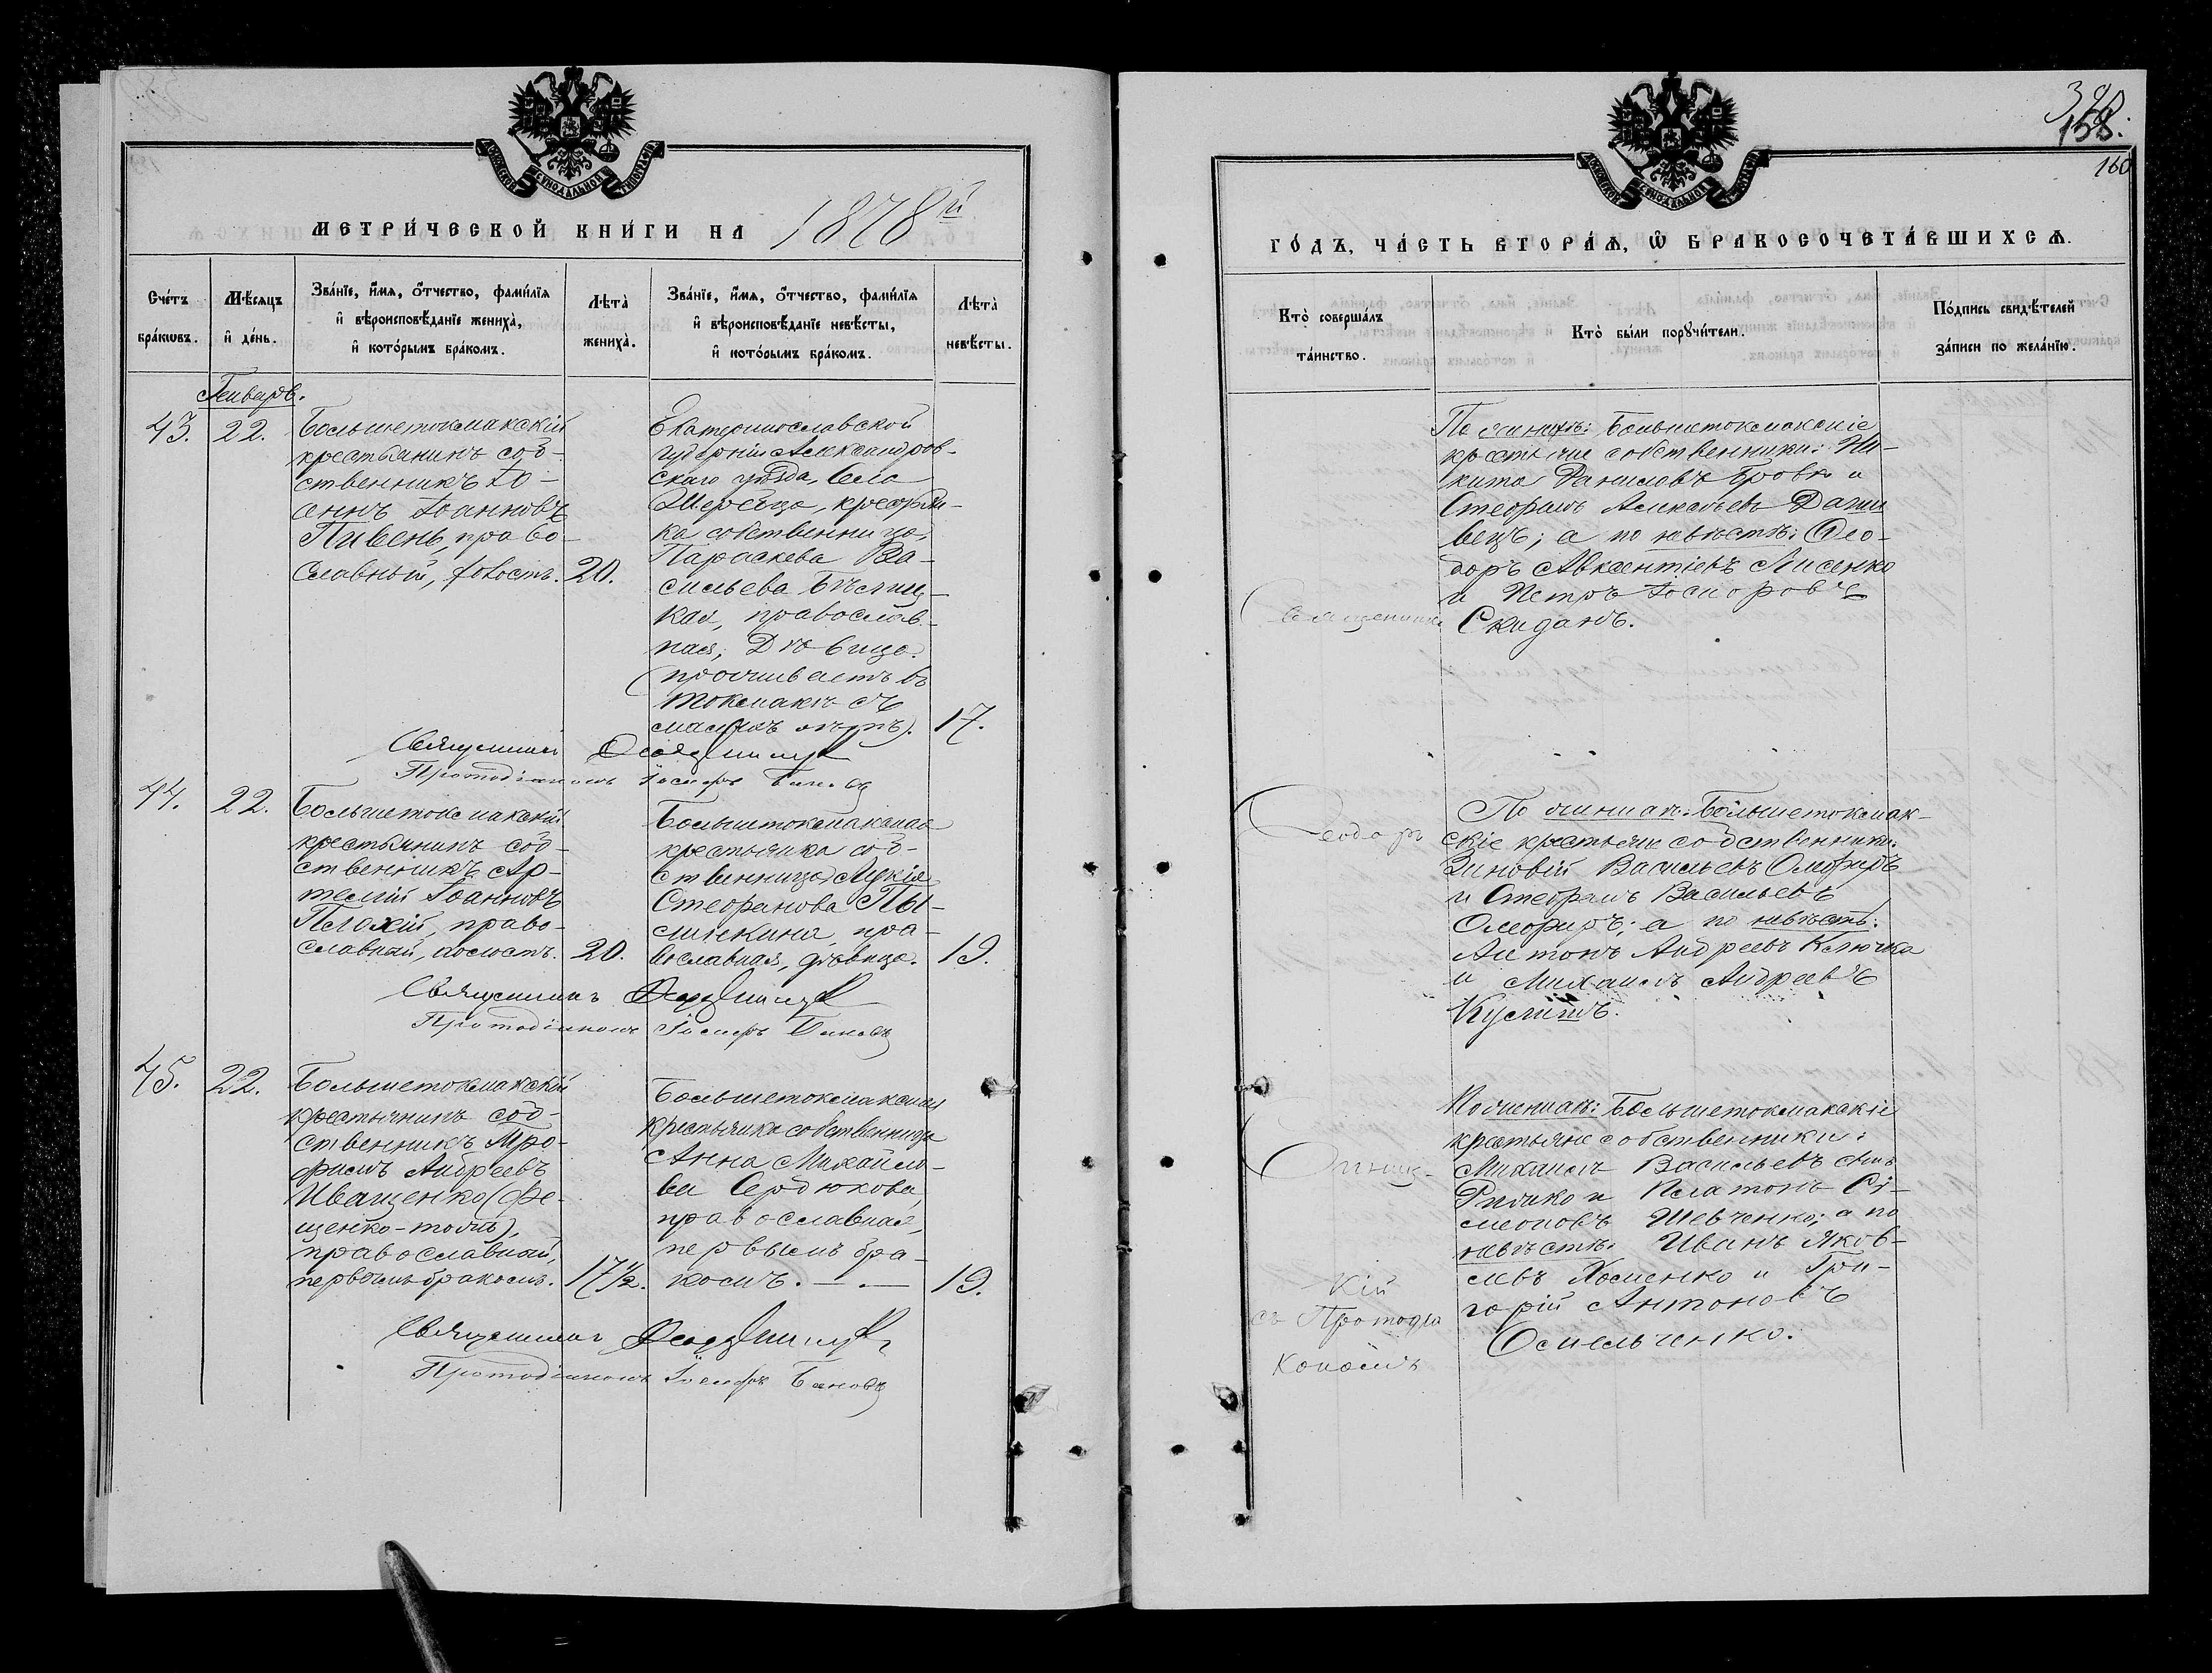 МЕТРИ́ЧЕСКОЙ КНИ́ГИ НА 1878й
Сче́тъ бра́кѡвъ.
Мѣ́сяцъ и҆ де́нь.
Зва́нїе, и҆́мя, ѻ҆́тчество, фами́лїя
и҆ вѣроисповѣ́данїе жениха̀,
и҆ кото́рымъ бра́комъ.
Лѣта̀ жениха̀.
Зва́нїе, и҆́мя, ѻ҆́тчество, фами́лїя
и҆ вѣроисповѣ́данїе невѣ́сты,
и҆ кото́рымъ бра́комъ.
Лѣта̀ невѣ́сты.
Генварь.
43. 22.
Большетокмакскій
крестьянинъ соб-
ственникъ Іо-
аннъ Іоанновъ
Пивень, право-
славный, холостъ. 20.
Екатеринославской
губерніи Александров-
скаго уѣзда, села
крестьян-
ка собственница,
Параскева Ва-
сильева Бѣлиц-
кая, православ-
ная, Дѣвица.
(проживаетъ въ
Токмакѣ съ
17.
Священникъ
Протодіаконъ Іосифъ
44. 22.
Большетокмакскій
крестьянинъ соб-
ственникъ Ар-
темій Іоанновъ
Плохій, право-
славный, холостъ. 20.
Большетокмакская
крестьянка соб-
ственница Лукія
Стефанова
пра-
вославная, дѣвица. 19.
Священникъ
Протодіаконъ Іосифъ
45. 22.
Большетокмакскій
крестьянинъ соб-
ственникъ Тро-
фимъ Андреевъ
Иващенко (Фе-
щенко-тожъ),
православный,
первымъ бракомъ. 17½.
Большетокмакская
крестьянка собственница
Анна Михайло-
ва Сердюкова,
православная,
первымъ бра-
комъ. 19.
Священникъ
Протодіаконъ Іосифъ
158.
160
ГО́ДЪ, ЧА́СТЬ ВТОРА́Ѧ, Ѽ БРАКОСОЧЕТА́ВШИХСѦ.
Кто̀ соверша́лъ
та́инство.
Кто̀ бы́ли порꙋчи́тели.
По́дпись свидѣ́телей
за́писи по жела́нїю.
Священникъ
Ѳеодоръ
кій
съ Протодіа
кономъ
По женихѣ: Большетокмакскіе
крестьяне собственники: Ни-
кита Даниловъ Бровко и
Стефанъ Алексѣевъ
вецъ; а по невѣстѣ: Ѳео-
доръ Авксентіевъ Лисенко
и Петръ Іосифовъ
Скиданъ.
По женихѣ: Большетокмак-
скіе крестьяне собственники:
Зиновій Васильевъ
и Стефанъ Васильевъ
а по невѣстѣ:
Антонъ Андреевъ Ключка
и Михаилъ Андреевъ
По женихѣ: Большетокмакскіе
крестьяне собственники:
Михаилъ Васильевъ
и Платонъ Си-
меоновъ Шевченко; а по
невѣстѣ: Иванъ Яков-
левъ Хоменко и Гри-
горій Антоновъ
Осмельченко.